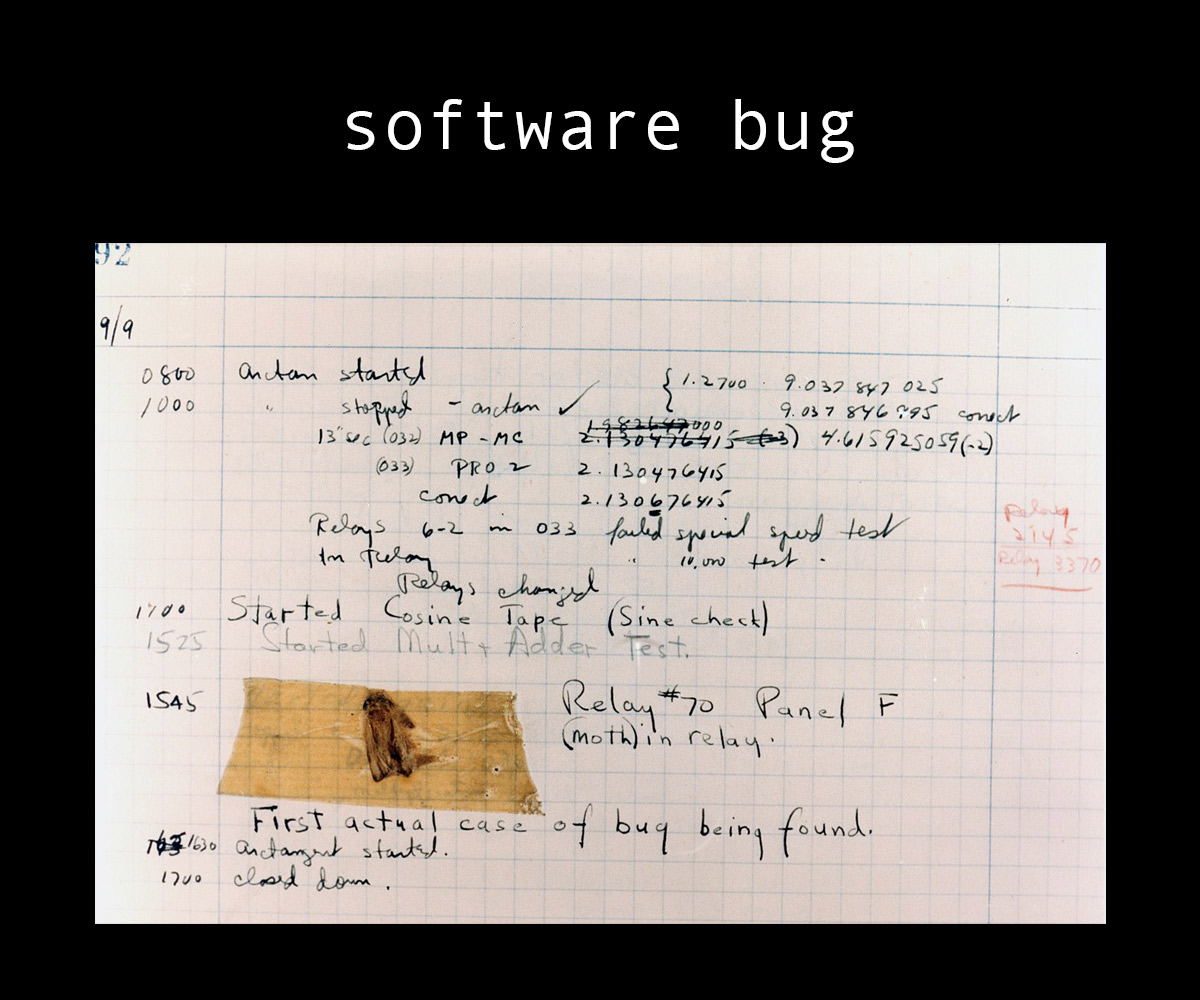 software bug
92
9/9
0800 arctan started { 1.2700 · 9.037 847 025
1000 " stopped - arctan ✓ 9.037 846 995 correct
13"sec (032) MP - MC 2.130476415 (-3) 4.615925059(-2)
(033) PRO 2 2.130476415
correct 2.130676415
Relays 6-2 in 033 failed special speed test
In Relay " 10,000 test .
Relays changed
Relay
2145
Relay 3370
1700 Started Cosine Tape (Sine check)
1525 Started Mult + Adder Test.
1545 Relay #70 Panel F
(moth) in relay.
First actual case of bug being found.
1630 arctangent started.
1700 closed down .